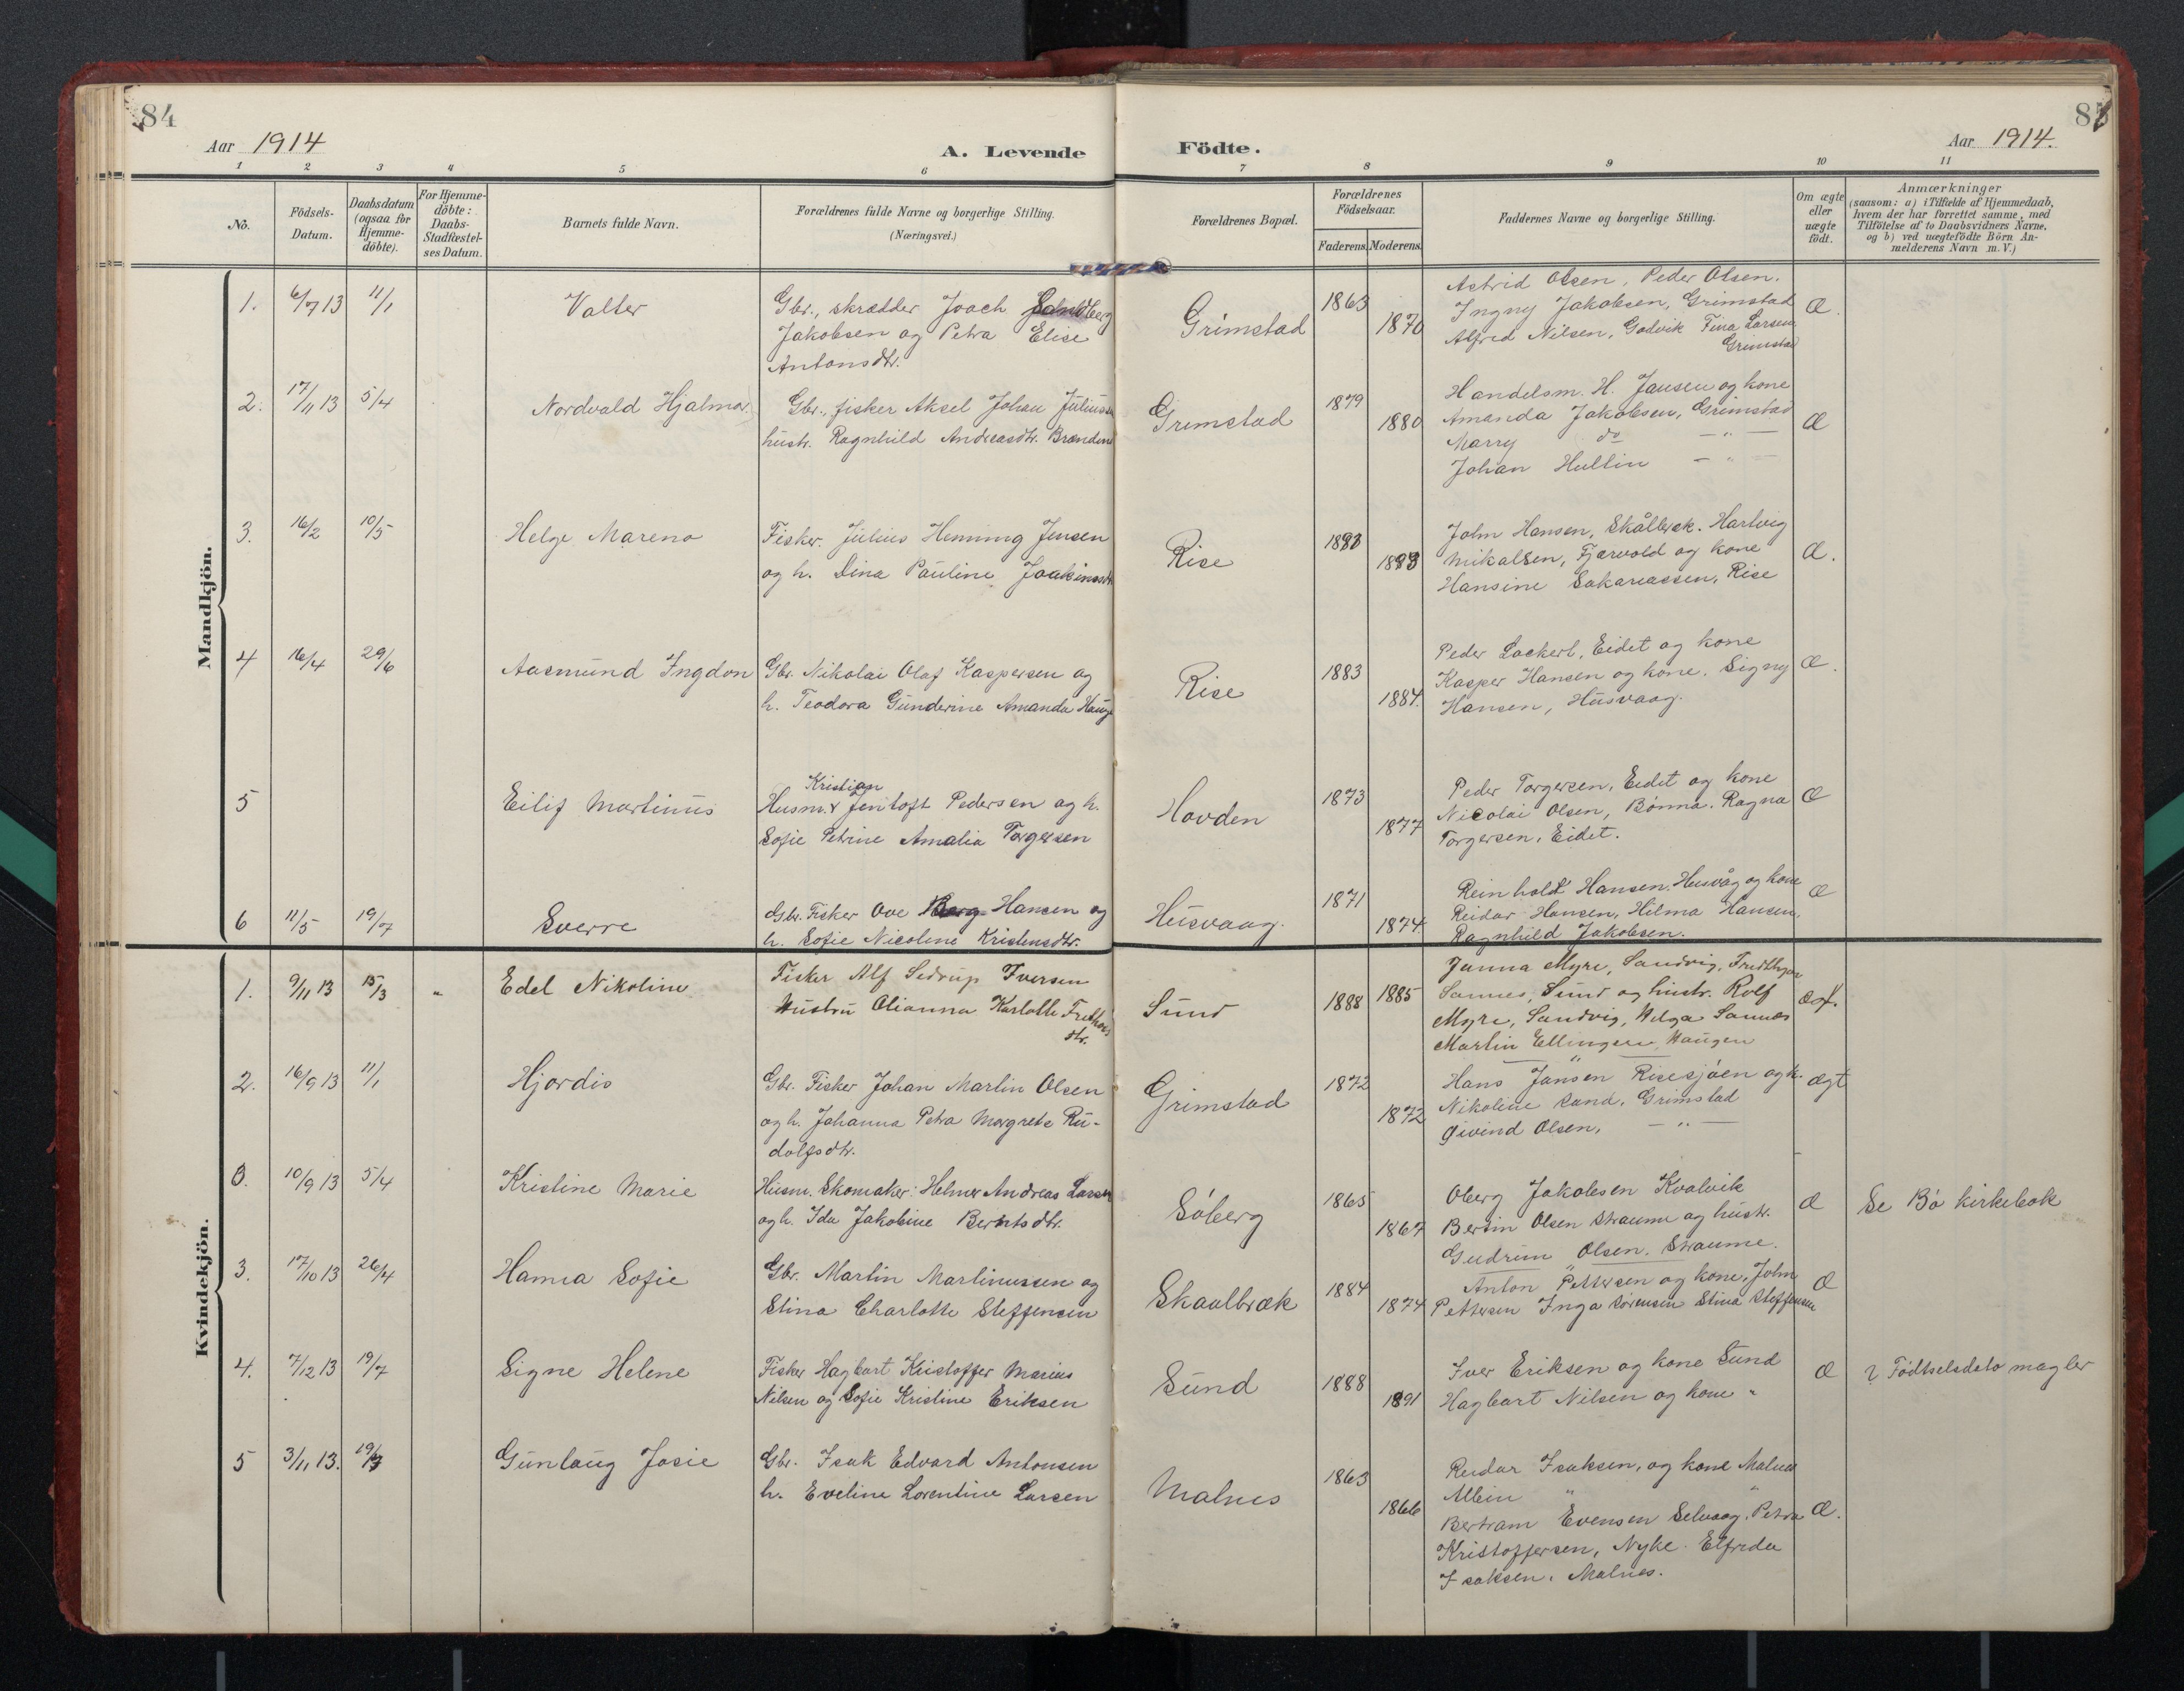 84
85
Aar 1914
A. Levende
Födte.
Aar 1914.
1 2 3 4 5 6 7 8 9 10 11
No.
Födsels-
Datum.
Daabsdatum
(ogsaa for
Hjemme-
döbte).
For Hjemme-
döbte:
Daabs-
Stadfæstel-
ses Datum.
Barnets fulde Navn.
Forældrenes fulde Navne og borgerlige Stilling.
(Næringsvei.)
Forældrenes Bopæl.
Forældrenes
Födselsaar.
Faderens. Moderens.
Faddernes Navne og borgerlige Stilling.
Om ægte
eller
uægte
födt.
Anmærkninger
(saasom: a) i Tilfælde af Hjemmedaab,
hvem der har forrettet samme, med
Tilföielse af to Daabsvidners Navne,
og b) ved uægtefödte Börn An-
melderens Navn m. V.)
Mandkjön.
1. 6/7 13 11/1 Valter
Gbr., skrædder Joach Sandberg
Jakobsen og Petra Elise
Antonsdtr.
Grimstad 1863 1870
Astrid Olsen, Peder Olsen.
Ingny Jakobsen, Grimstad
Alfred Nilsen, Godvik Fina Larsen
Grimstad
Æ.
2. 17/11 13 5/4 Nordvald Hjalmar
Gbr., fisker Aksel Johan Juliussen
hustr. Ragnhild Andreasdtr.
Grimstad 1879 1880
Handelsm. H. Jansen og kone
Amanda Jakobsen, Grimstad
Marry do — " —
Johan Hultin — " —
Æ
3. 16/2 10/5 Helge Mareno
Fisker. Julius Henning Jensen
og h. Dina Pauline Joakimsdtr
Rise
John Hansen, Skålbræk. Hartvig
Mikalsen, Fjærvold og kone
Hansine Sakariassen, Rise
Æ.
4 16/4 29/6 Aasmund Ingdon
Gbr. Nikolai Olaf Kaspersen og
h. Teodora Gunderine Amanda
Rise 1883 1884.
Peder Lockert, Eidet og kone
Kasper Hansen og kone. Signy
Hansen, Husvaag.
Æ.
5 Eilif Martinus
Kristian
Husm. Jentoft Pedersen og h.
Sofie Petrine Amalia Torgersen
Hovden 1873 1877
Peder Torgersen, Eidet og kone
Nicolai Olsen, Bønna. Ragna
Torgersen, Eidet.
Æ
6 11/5 19/7 Sverre
Gbr. Fisker Ove Hansen og
h. Sofie Nicoline Kristensdtr.
Husvaag. 1871 1874.
Reinholdt Hansen. Husvåg og kone
Reidar Hansen, Hilma Hansen,
Ragnhild Jakobsen.
Æ
Kvindekjön.
1. 9/11 13 15/3 " Edel Nikoline
Fisker Alf Sedrup Iversen
Hustru Olianna Karlotte
dtr.
Sund 1888 1885
Janna Myre, Sandvig,
Sannes, Sund og hustr. Rolf
Myre, Sandvig, Helga Sannes
Martin Ellingsen, Haugen
2. 16/9 13 11/1 Hjordis
Gbr. Fisker Johan Martin Olsen
og h. Johanna Petra Margrete Ru-
dolfsdtr.
Grimstad 1872 1872
Hans Jansen Risesjøen og k.
Nikoline Sand, Grimstad
Øivind Olsen, — " —
ægt
3. 10/9 13 5/4 Kristine Marie
Husm. Skomaker: Helmer Andreas Larsen
og h. Ida Jakobine Berntsdtr.
Søberg 1865 1867
Oberg Jakobsen Kvalvik
Bertin Olsen Straume og hustr.
Gudrun Olsen. Straume.
Æ
Se Bø kirkebok
3. 17/10 13 26/4 Hanna Sofie
Gbr. Martin Martinussen og
Stina Charlotte Steffensen
Skaalbræk 1884 1874
Anton Pettersen og kone, John
Pettersen Inga Sørensen Stina Steffensen
Æ
4. 7/12 13 19/7 Signe Helene
Fisker Hagbart Kristoffer Marius
Nilsen og Sofie Kristine Eriksen
Sund 1888 1891
Iver Eriksen og kone Sund
Hagbart Nilsen og kone "
Æ
? Fødtselsdato magler
5 3/11 13. 19/7 Gunlaug Josie
Gbr. Isak Edvard Antonsen
h. Eveline Lorentine Larsen
Malnes 1863 1866
Reidar Isaksen, og kone Malnes
Albein " "
Bertram Evensen Selvaag. Petra
Kristoffersen, Nyke. Elfrida
Isaksen, Malnes.
Æ.